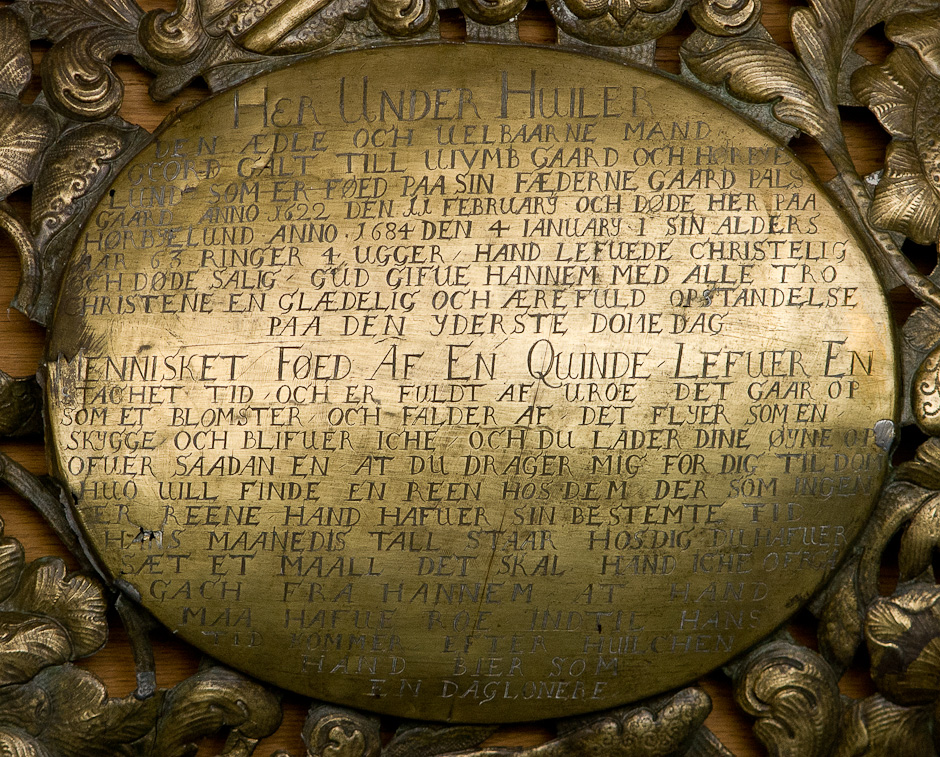 HER UNDER HUILER
DEN ÆDLE OCH UELBAARNE MAND
OTTO GALT TILL UIVMB GAARD OCH HØRBYE
LUND SOM ER FØED PAA SIN FÆDERNE GAARD PALS
GAARD ANNO 1622 DEN 11 FEBRUARY OCH DØDE HER PAA
HØRBYELUND ANNO 1684 DEN 4 IANUARY I SIN ALDERS
AAR 63 RINGER 4 UGGER HAND LEFUEDE CHRISTELIG
OCH DØDE SALIG GUD GIFUE HANNEM MED ALLE TRO
CHRISTENE EN GLÆDELIG OCH ÆREFULD OPSTANDELSE
PAA DEN YDERSTE DOMEDAG
MENNISKET FØED AF EN QUINDE LEFUER EN
STACHET TID OCH ER FULDT AF UROE DET GAAR OP
SOM ET BLOMSTER OCH FALDER AF DET FLYER SOM EN
SKYGGE OCH BLIFUER ICHE OCH DU LADER DINE ØYNE OP
OFUER SAADAN EN AT DU DRAGER MIG FOR DIG TIL DOM
HUO WILL FINDE EN REEN HOS DEM DER SOM INGEN
ER REENE HAND HAFUER SIN BESTEMTE TID
HANS MAANEDIS TALL STAAR HOS DIG DU HAFUER
SÆT ET MAALL DET SKAL HAND ICHE OFRGA
GACH FRA HANNEM AT HAND
MAA HAFUE ROE INDTIL HANS
TID KOMMER EFTER HUILCHEN
HAND BIER SOM
EN DAGLØNERE